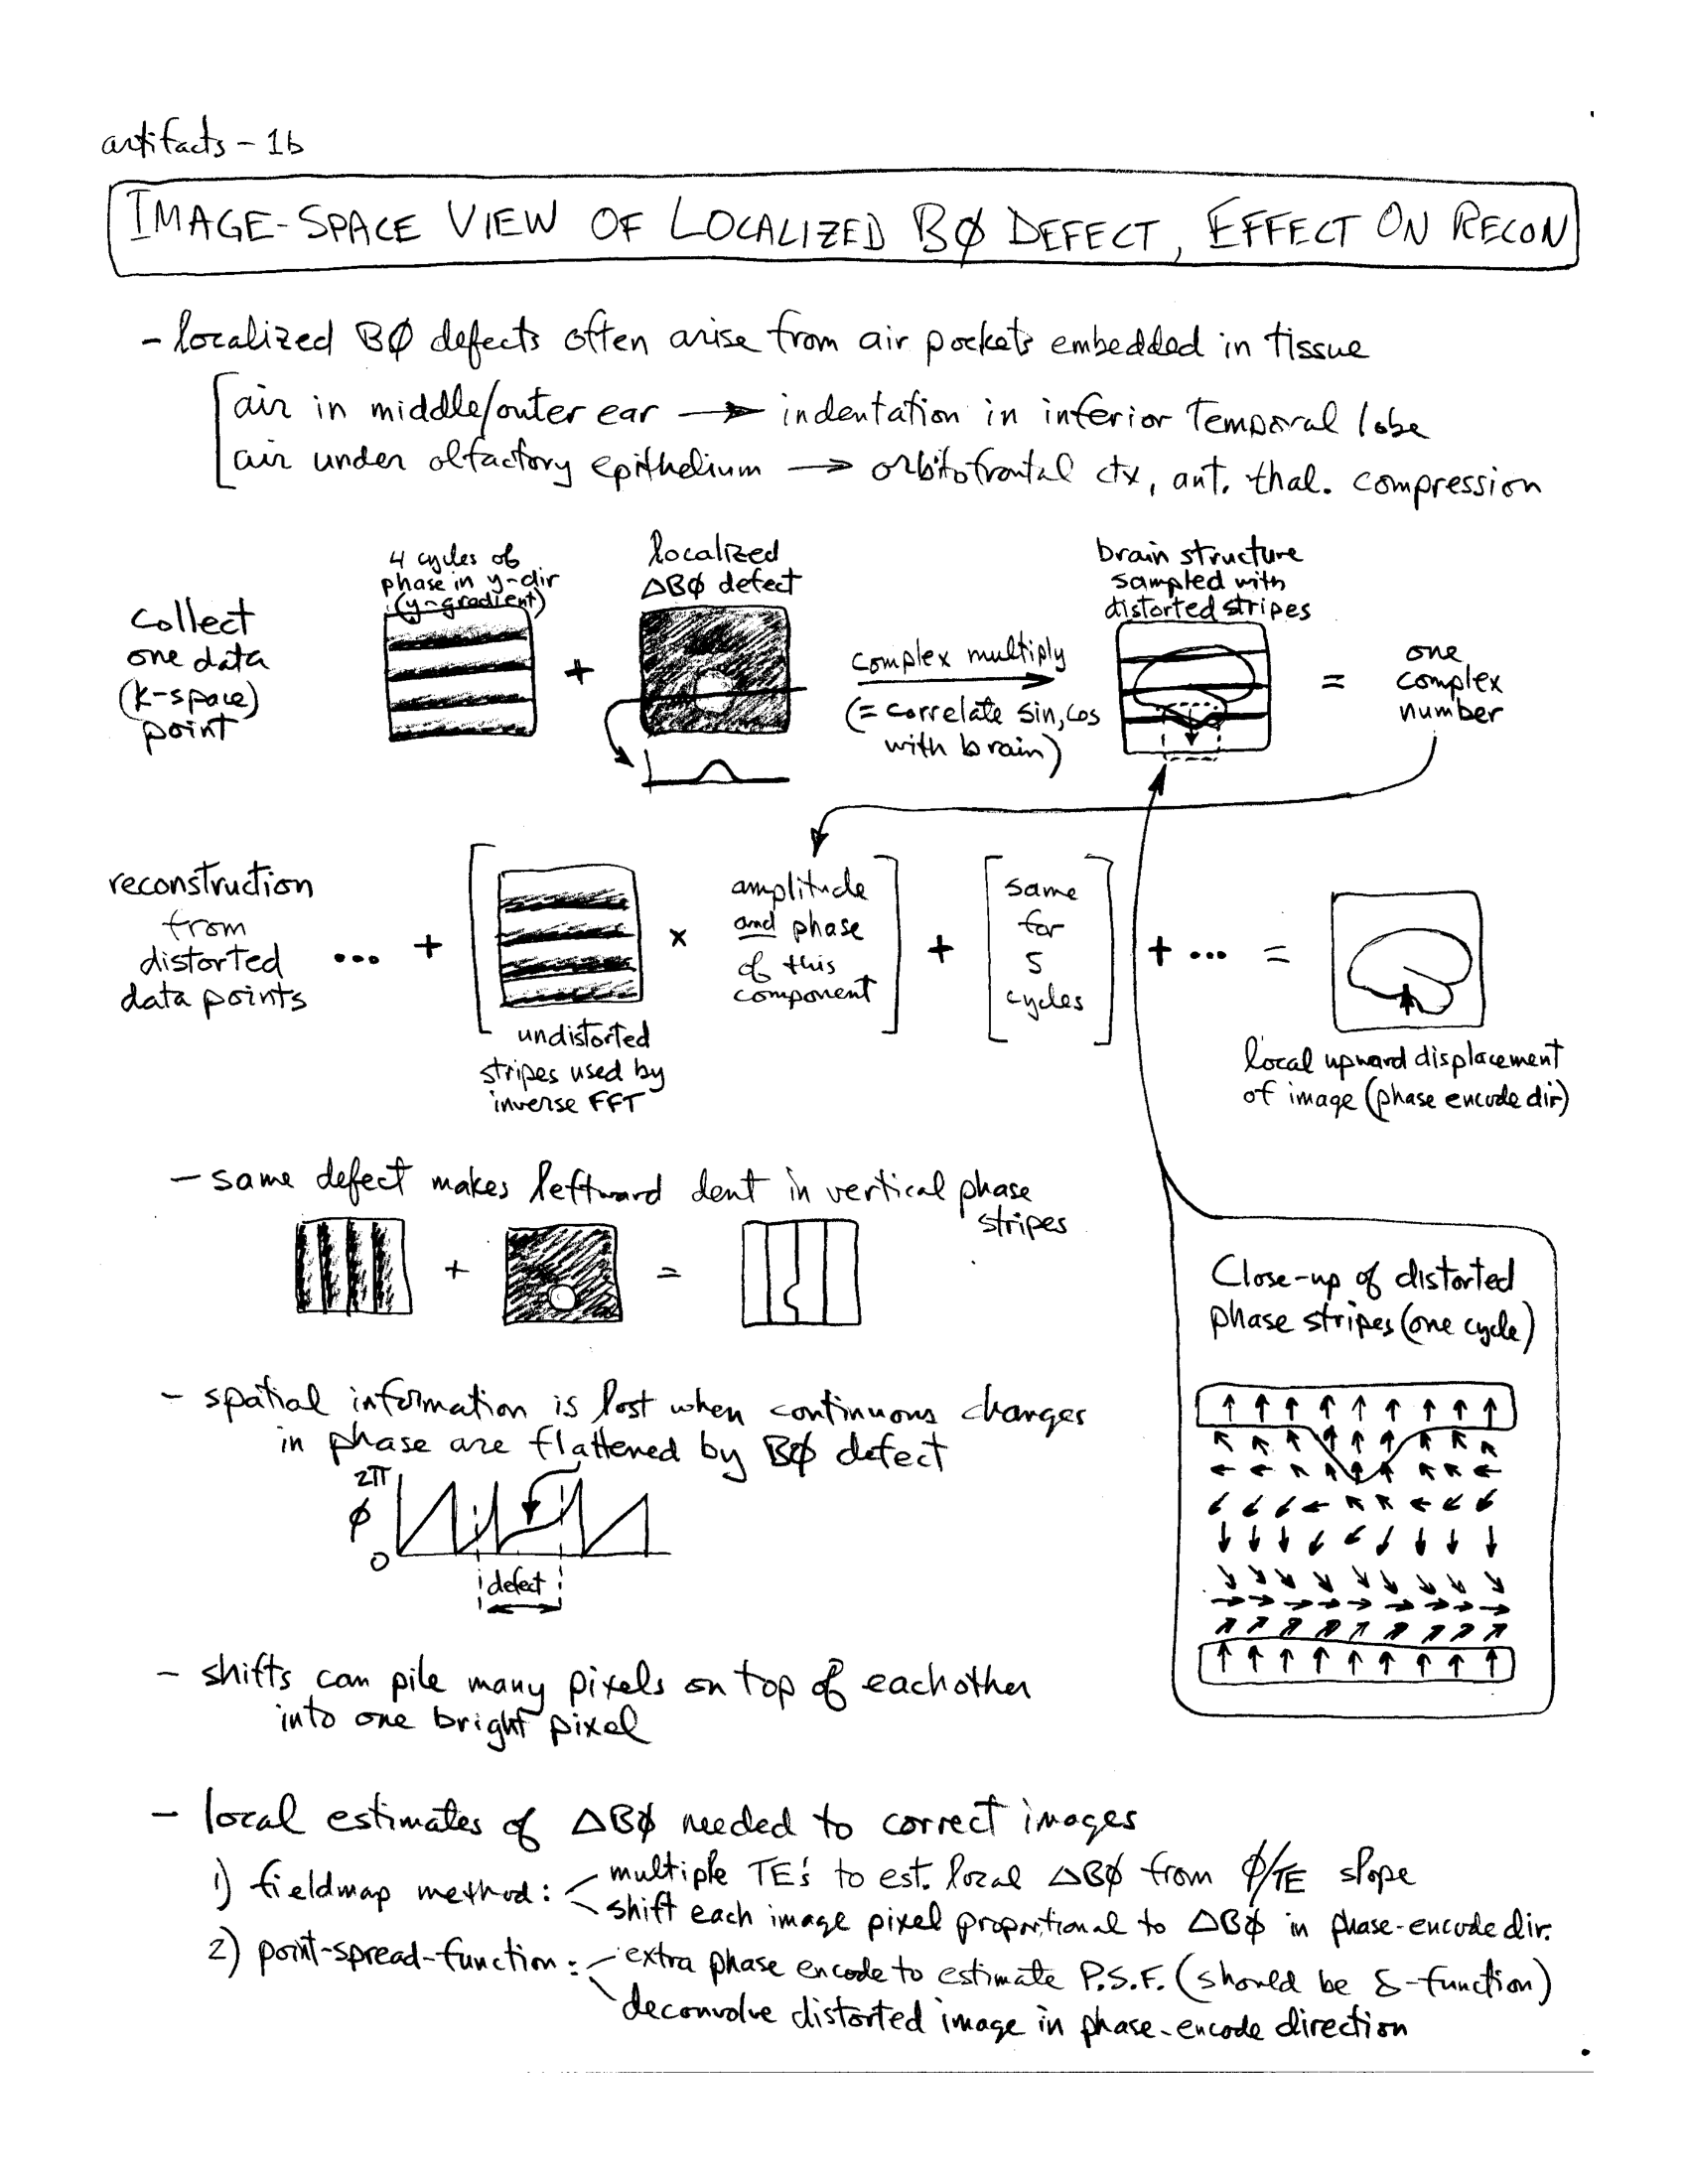 artifacts - 1b
IMAGE-SPACE VIEW OF LOCALIZED BØ DEFECT, EFFECT ON RECON
- localized BØ defects often arise from air pockets embedded in tissue
air in middle/outer ear → indentation in inferior temporal lobe
air under olfactory epithelium → orbitofrontal ctx, ant. thal. compression
collect
one data
(k-space)
point
4 cycles of
phase in y-dir
(y-gradient)
+
localized
ΔBØ defect
complex multiply
(= correlate sin, cos
with brain)
brain structure
sampled with
distorted stripes
=
one
complex
number
reconstruction
from
distorted
data points
... +
undistorted
stripes used by
inverse FFT
x
amplitude
and phase
of this
component
+
same
for
5
cycles
+ ... =
local upward displacement
of image (phase encode dir)
- same defect makes leftward dent in vertical phase
stripes
+ =
Close-up of distorted
phase stripes (one cycle)
- spatial information is lost when continuous changes
in phase are flattened by BØ defect
2π
ϕ
0
defect
- shifts can pile many pixels on top of each other
into one bright pixel
- local estimates of ΔBØ needed to correct images
1) fieldmap method: multiple TE's to est. local ΔBØ from ϕ/TE slope
shift each image pixel proportional to ΔBØ in phase-encode dir.
2) point-spread-function: extra phase encode to estimate P.S.F. (should be δ-function)
deconvolve distorted image in phase-encode direction